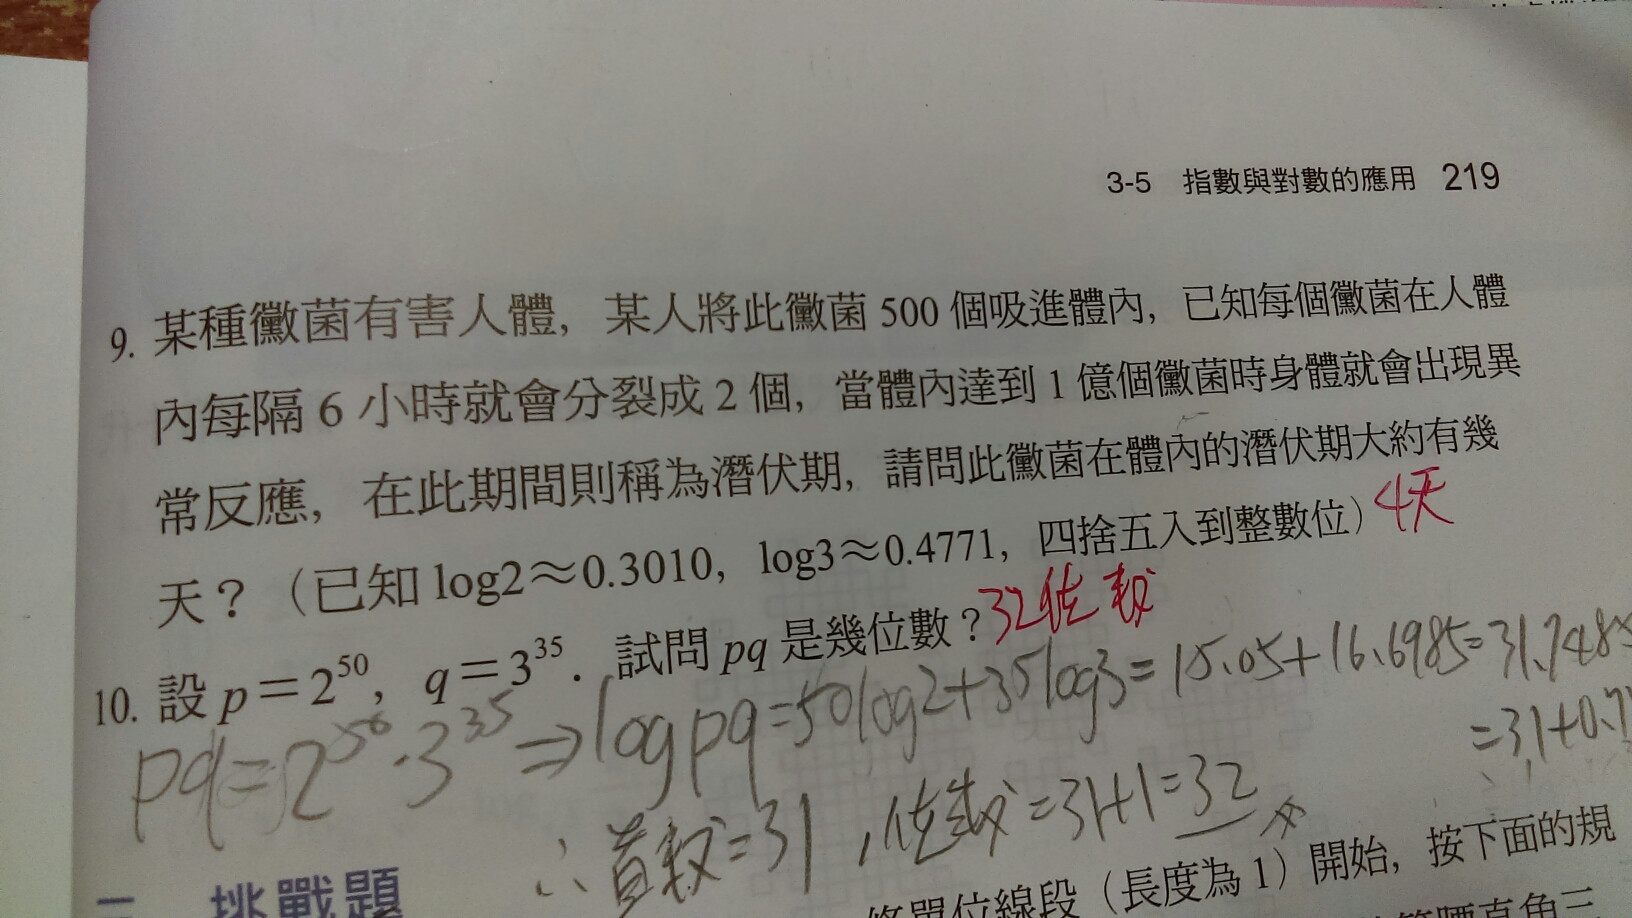 3-5 指數與對數的應用 219
9. 某種黴菌有害人體，某人將此黴菌 500 個吸進體內，已知每個黴菌在人體
內每隔 6 小時就會分裂成 2 個，當體內達到 1 億個黴菌時身體就會出現異
常反應，在此期間則稱為潛伏期，請問此黴菌在體內的潛伏期大約有幾
天？（已知 log2≈0.3010，log3≈0.4771，四捨五入到整數位）4天
10. 設 p＝2⁵⁰，q＝3³⁵．試問 pq 是幾位數？32位數
pq=2⁵⁰·3³⁵⇒logpq=50log2+35log3=15.05+16.6985=31.748
=31+0.7
∴首數=31，位數=31+1=32
二 挑戰題
單位線段（長度為 1）開始，按下面的規
直角三